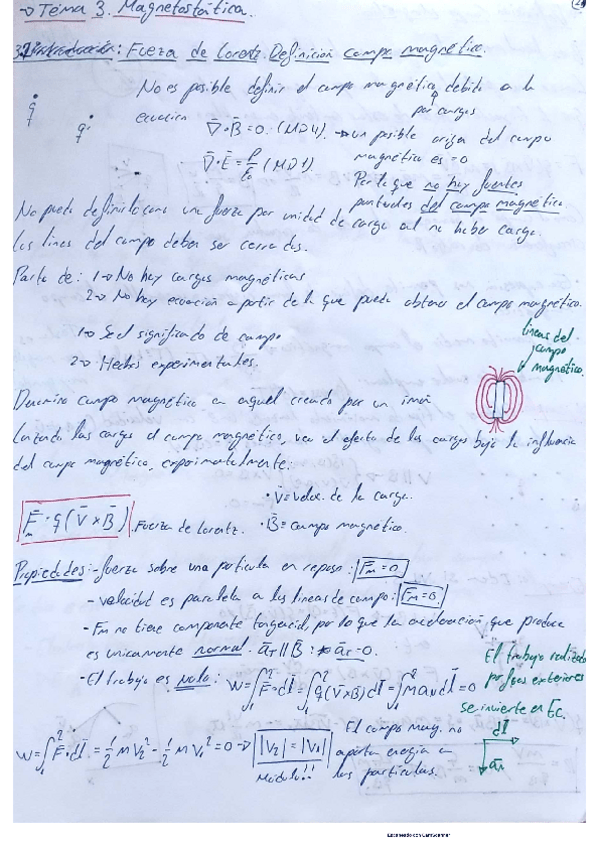 → Tema 3. Magnetostática.
3.1 Introducción: Fuerza de Lorentz. Definición campo magnético.
No es posible definir el campo magnético debido a la
por cargas
ecuación ∇·B̄=0 (MD4). → un posible origen del campo
magnético es =0
q
q'
∇·Ē=ρ/ε₀ (MD1)
Por lo que no hay fuentes
puntuales del campo magnético.
No puedo definirlo como una fuerza por unidad de carga al no haber carga.
Las líneas del campo deben ser cerradas.
Parto de: 1→ No hay cargas magnéticas
2→ No hay ecuación a partir de la que pueda obtener el campo magnético.
1→ Sé el significado de campo
2→ Hechos experimentales.
líneas del
campo
magnético.
Denomino campo magnético a aquel creado por un imán
Lanzando las cargas al campo magnético, veo el efecto de las cargas bajo la influencia
del campo magnético, experimentalmente:
• V̄=veloc. de la carga.
F̄m = q(V̄×B̄) Fuerza de Lorentz. • B̄= campo magnético.
Propiedades: - fuerza sobre una partícula en reposo: F̄m=0
- velocidad es paralela a las líneas de campo: F̄m=0
- Fm no tiene componente tangencial, por lo que la aceleración que produce
es únicamente normal. āT∥B̄ : āT=0.
- El trabajo es nulo: W=∫₁² F̄·dl̄=∫₁² q(V̄×B̄)dl̄=∫₁² m aN dl̄=0
El trabajo realizado
por fzas exteriores
se invierte en Ec.
W=∫₁² F̄·dl̄=½ m V₂² - ½ m V₁²=0 → |V₂|=|V₁|
Módulo!!
El campo mag. no
aporta energía a
las partículas.
dl̄
āN
Escaneado con CamScanner